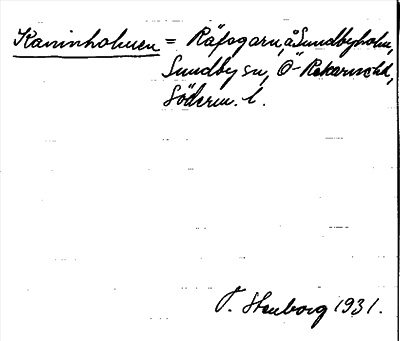 Kaninholmen = Räfsgarn, å Sundbyholm,
Sundby sn, Ö-Rekarne hd,
Söderm. l.
F. Stenborg 1931.